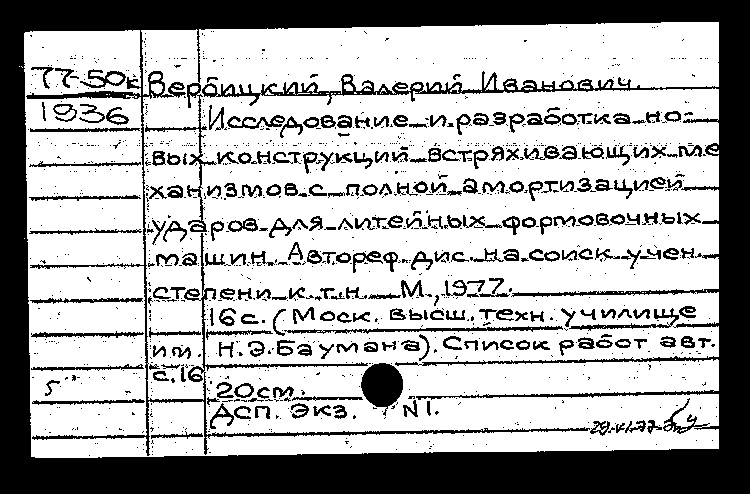 77-50к Вербицкий, Валерий Иванович.
1936 Исследование и разработка но-
вых конструкций встряхивающих ме
ханизмов с полной амортизацией
ударов для литейных формовочных
машин. Автореф. дис. на соиск. учен.
степени к.т.н. М., 1977.
16 с. (Моск. высш. техн. училище
им. Н.Э.Баумана). Список работ авт.
с.16
5
20см.
ДСП. Экз. N1.
29.VI.77